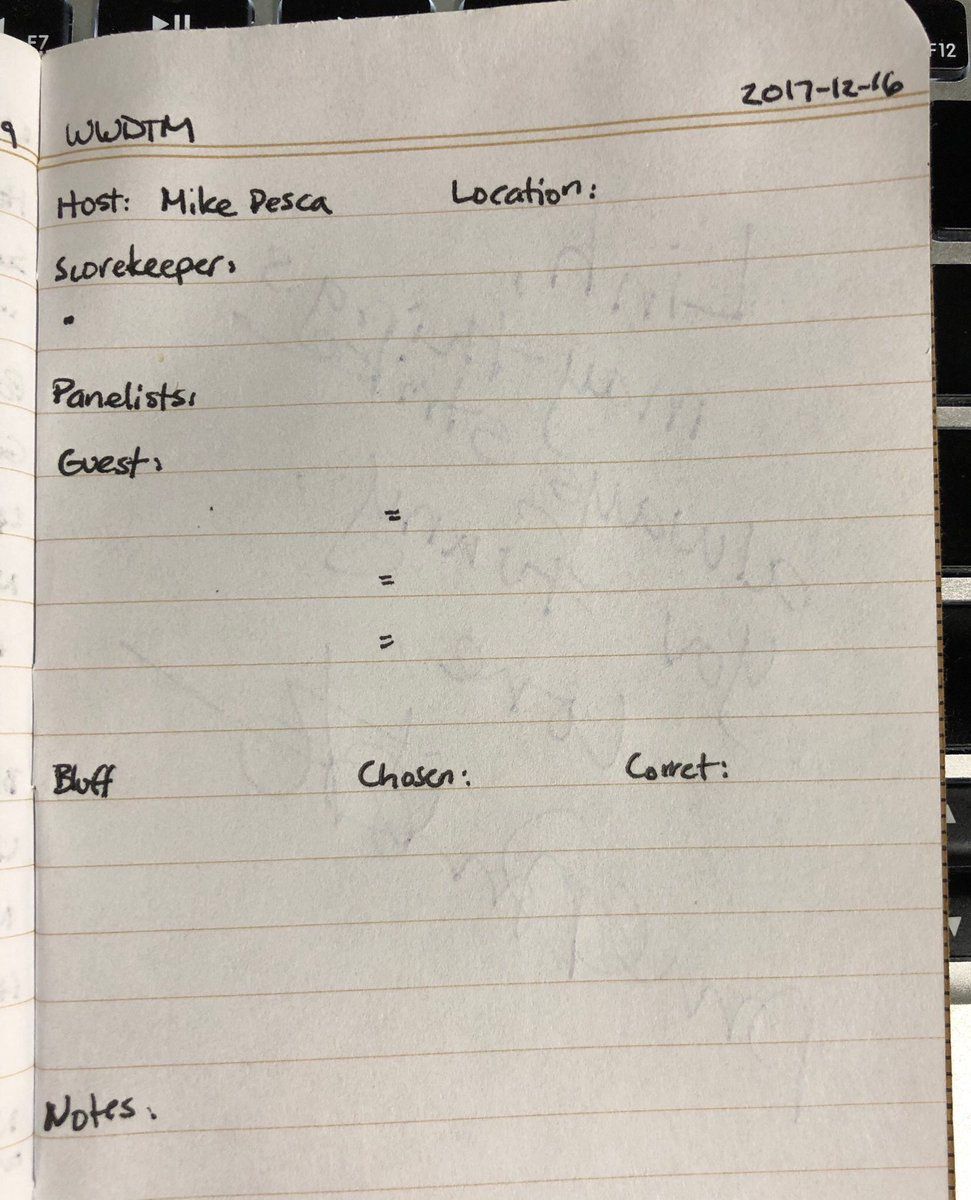 F7
F12
2017-12-16
9
WWDTM
Host: Mike Pesca Location:
Scorekeeper:
•
Panelists:
Guest:
=
=
=
Bluff Chosen: Corret:
Notes: